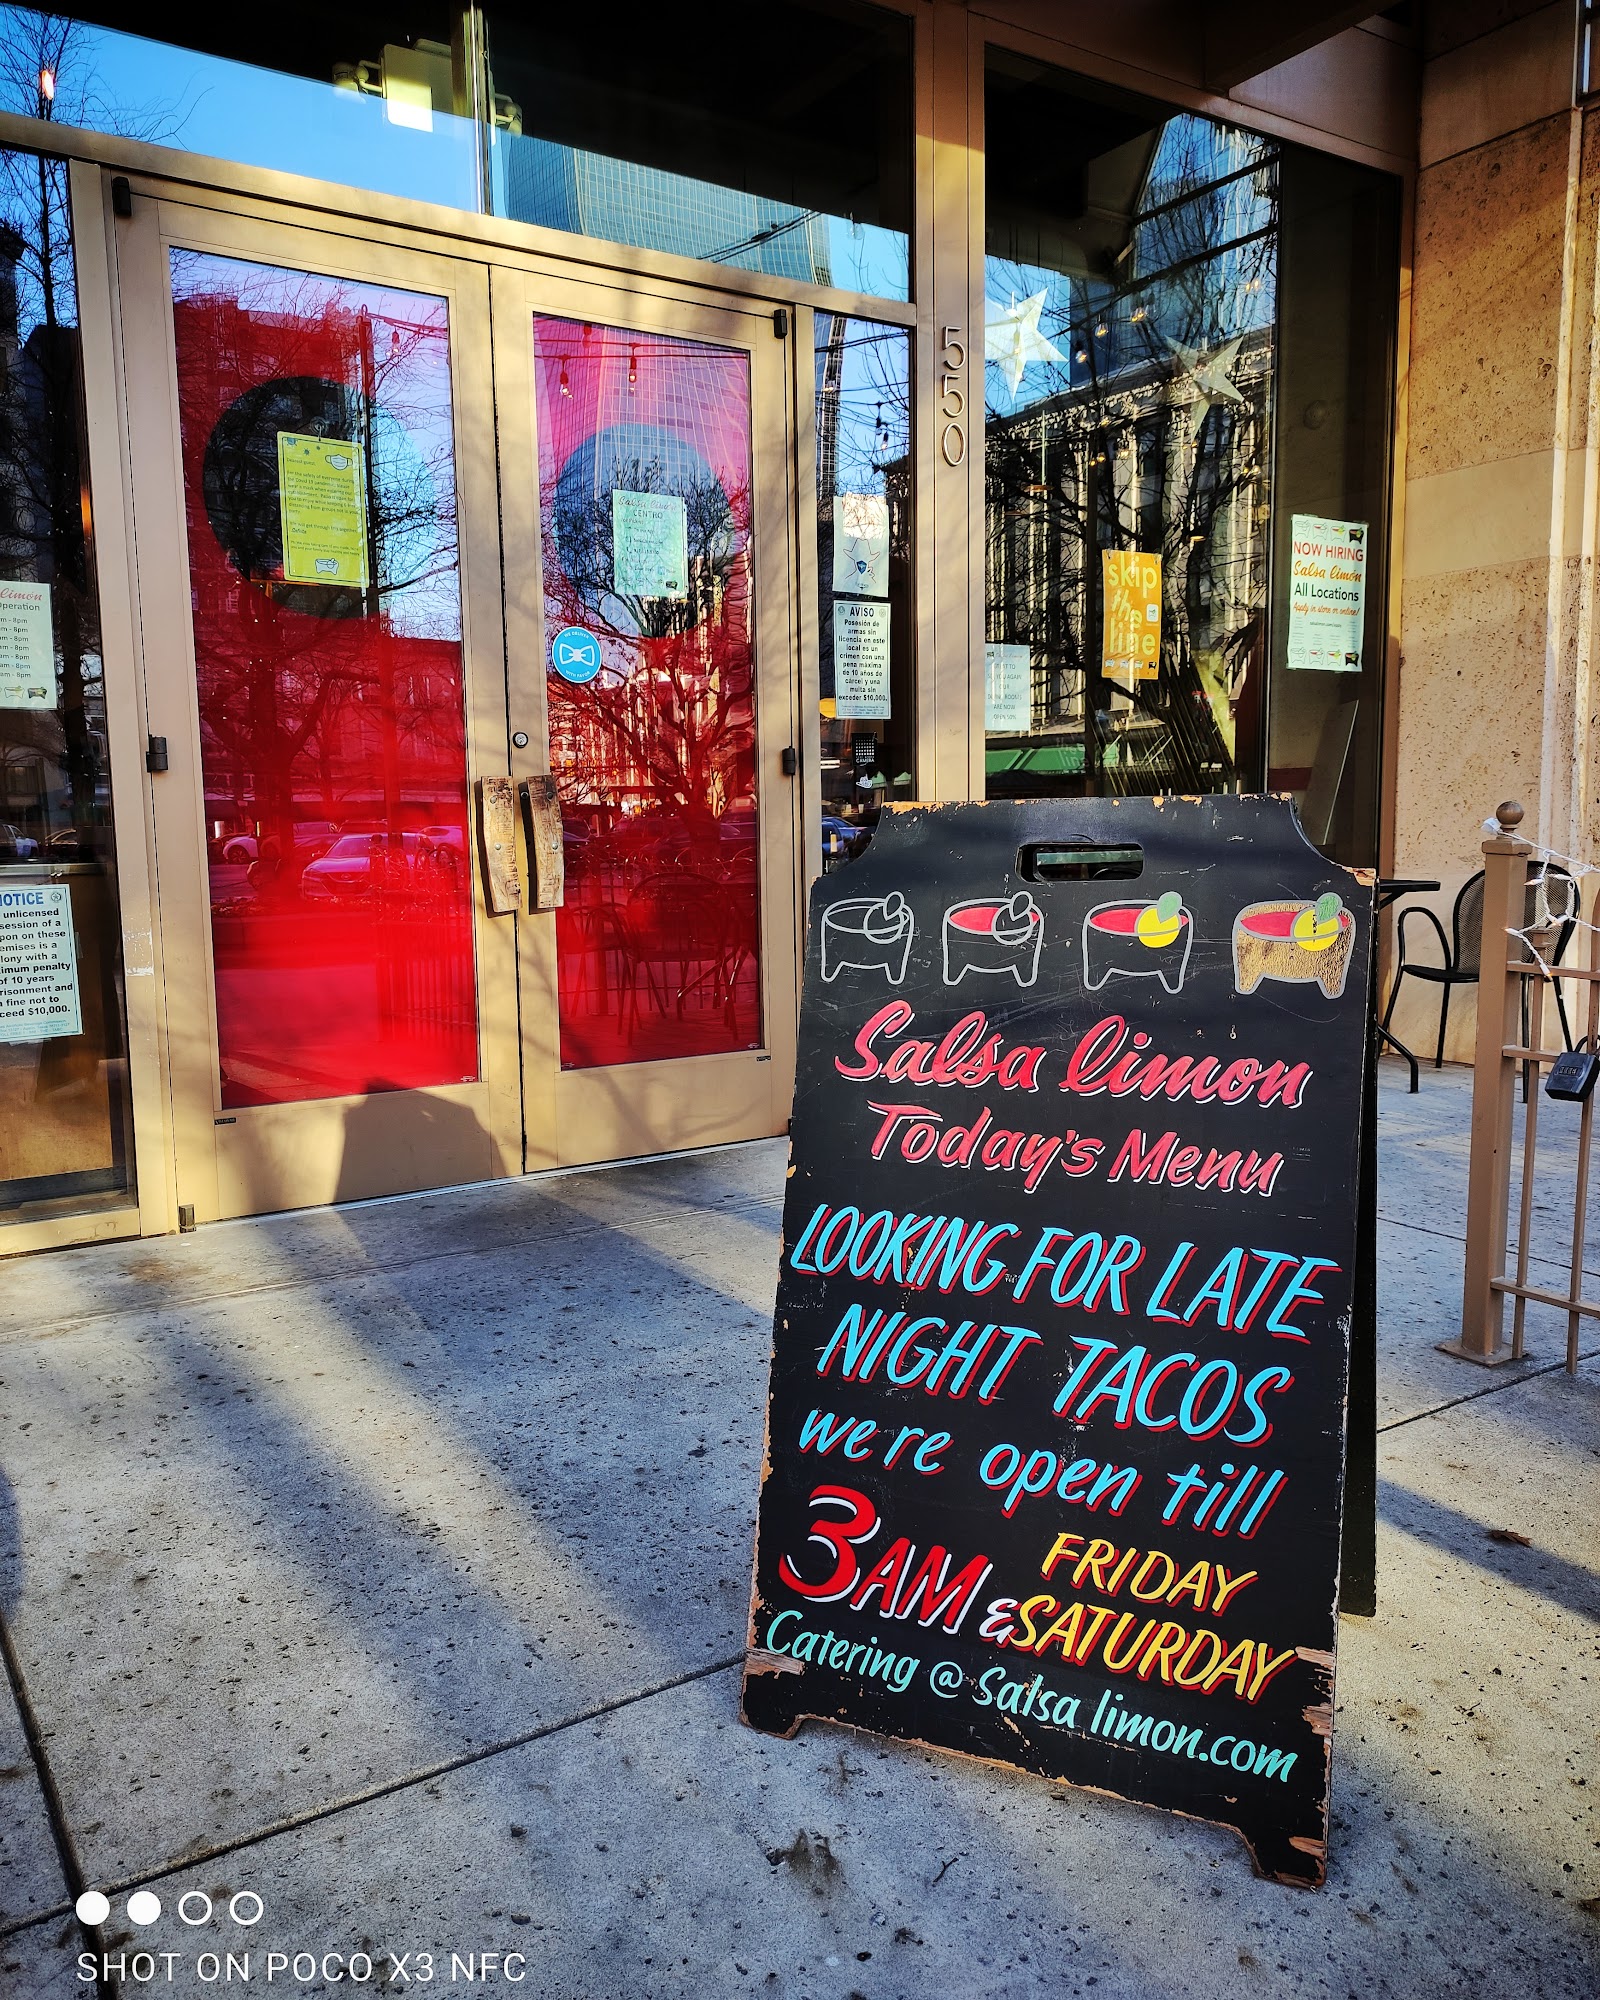 limon
peration
am - 8pm
am - 8pm
am - 8pm
NOTICE
unlicensed
session of a
pon on these
emises is a
lony with a
imum penalty
of 10 years
risonment and
fine not to
ceed $10,000.
Dearest guest,
Salsa limon
CENTRO
WE DELIVER
WITH FAVOR
AVISO
Posesión de
armas sin
licencia en este
local es un
crimen con una
pena máxima
de 10 años de
cárcel y una
multa sin
exceder $10,000.
550
YOU AGAIN
OUR
ARE NOW
OPEN 50%
skip
the
line
NOW HIRING
Salsa limon
All Locations
Apply in store or online!
Salsa limon
Today's Menu
LOOKING FOR LATE
NIGHT TACOS
we're open till
3AM FRIDAY
& SATURDAY
Catering @ Salsa limon.com
SHOT ON POCO X3 NFC